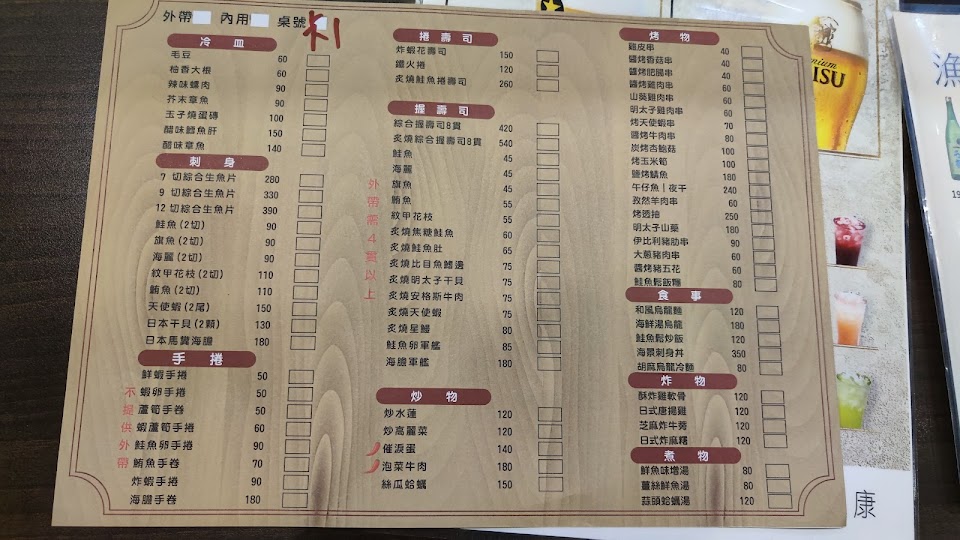 外帶 內用 桌號 K1
冷皿
毛豆 60
柚香大根 60
辣味螺肉 90
芥末章魚 90
玉子燒蛋磚 100
醋味鱈魚肝 150
醋味章魚 140
刺身
7 切綜合生魚片 280
9 切綜合生魚片 330
12 切綜合生魚片 390
鮭魚(2切) 90
旗魚(2切) 90
海麗(2切) 90
紋甲花枝(2切) 110
鮪魚(2切) 110
天使蝦(2尾) 150
日本干貝(2顆) 130
日本馬糞海膽 180
手捲
不提供外帶
鮮蝦手捲 50
蝦卵手捲 50
蘆筍手卷 50
蝦蘆筍手捲 60
鮭魚卵手捲 90
鮪魚手卷 70
炸蝦手捲 90
海膽手卷 180
捲壽司
炸蝦花壽司 150
鐵火捲 120
炙燒鮭魚捲壽司 260
握壽司
外帶需4貫以上
綜合握壽司8貫 420
炙燒綜合握壽司8貫 540
鮭魚 45
海麗 45
旗魚 45
鮪魚 55
紋甲花枝 55
炙燒焦糖鮭魚 60
炙燒鮭魚肚 65
炙燒比目魚鰭邊 75
炙燒明太子干貝 75
炙燒安格斯牛肉 75
炙燒天使蝦 75
炙燒星鰻 80
鮭魚卵軍艦 85
海膽軍艦 180
炒物
炒水蓮 120
炒高麗菜 120
催淚蛋 140
泡菜牛肉 180
絲瓜蛤蠣 150
烤物
雞皮串 40
醬烤香菇串 60
醬烤肥腸串 60
醬烤雞肉串 60
山葵雞肉串 60
明太子雞肉串 60
烤天使蝦串 70
醬烤牛肉串 80
炭烤杏鮑菇 100
烤玉米筍 100
鹽烤鯖魚 180
午仔魚｜夜干 240
孜然羊肉串 60
烤透抽 250
明太子山藥 180
伊比利豬肋串 90
大蔥豬肉串 60
醬烤豬五花 60
鮭魚鬆飯糰 60
食事
和風烏龍麵 120
海鮮湯烏龍 180
鮭魚鬆炒飯 120
海景刺身丼 350
胡麻烏龍冷麵 80
炸物
酥炸雞軟骨 120
日式唐揚雞 120
芝麻炸牛蒡 120
日式炸麻糬 120
煮物
鮮魚味增湯 80
薑絲鮮魚湯 80
蒜頭蛤蠣湯 120
ISU
漁
19
康